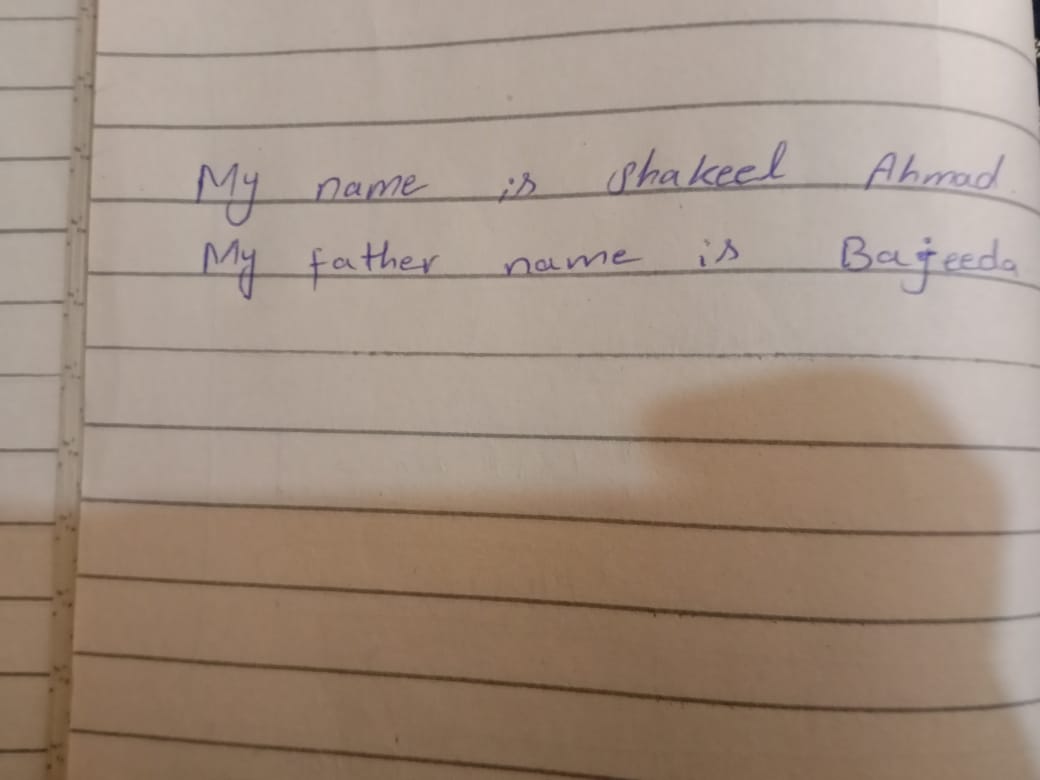 My name is Shakeel Ahmad
My father name is Bajeeda